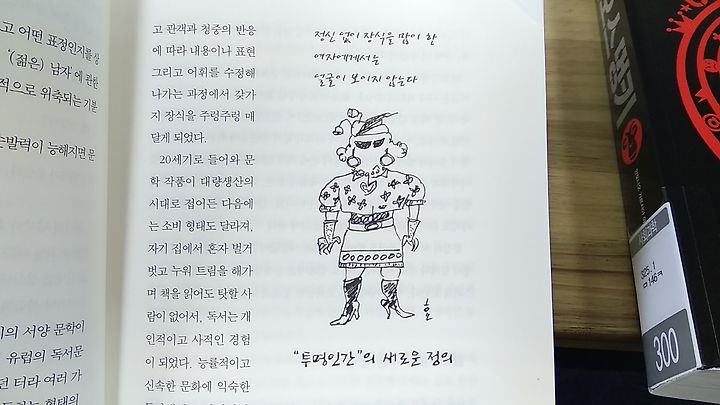 고 어떤 표정인지를 상
‘(젊은) 남자’에 관한
적으로 위축되는 기분
순발력이 능해지면 문
기의 서양 문학이
유럽의 독서문
던 터라 여러 가
고 관객과 청중의 반응
에 따라 내용이나 표현
그리고 어휘를 수정해
나가는 과정에서 갖가
지 장식을 주렁주렁 매
달게 되었다.
20세기로 들어와 문
학 작품이 대량생산의
시대로 접어든 다음에
는 소비 형태도 달라져,
자기 집에서 혼자 벌거
벗고 누워 트림을 해가
며 책을 읽어도 탓할 사
람이 없어서, 독서는 개
인적이고 사적인 경험
이 되었다. 능률적이고
신속한 문화에 익숙한
정신 없이 장식을 많이 한
여자에게서는
얼굴이 보이지 않는다
“투명인간”의 새로운 정의
사회과학
325.1
ㅁ146ㅋ
300